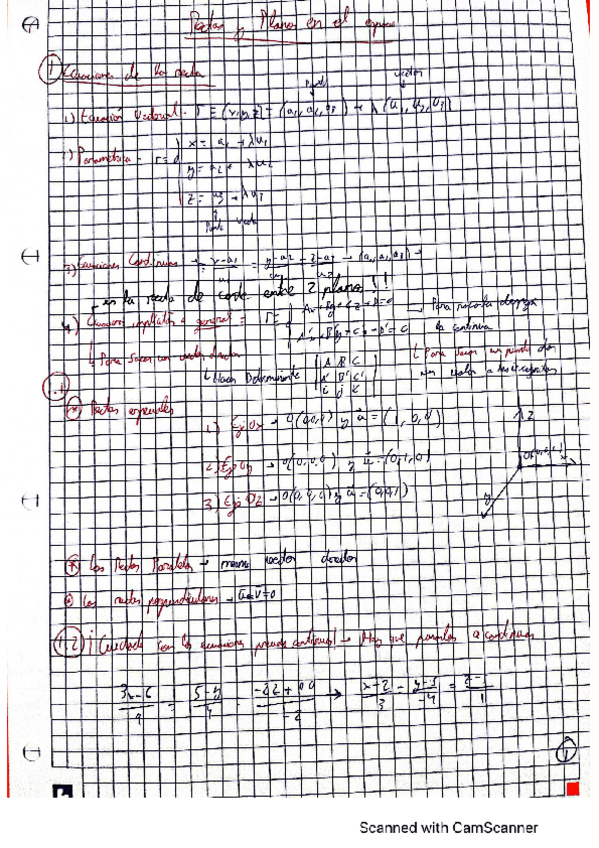 Rectas y Planos en el espacio
1 Ecuaciones de la recta
Punto vector
1) Ecuación Vectorial - r ≡ (x,y,z) = (a₁,a₂,a₃) + λ(u₁,u₂,u₃)
2) Paramétrica - r ≡ { x = a₁ + λu₁
y = a₂ + λu₂
z = a₃ + λu₃
Punto Vector
3) Ecuaciones Continuas → = x-a₁ = y-a₂ = z-a₃ → (a₁,a₂,a₃) →
es la recta de corte entre 2 planos!!
4) Ecuación implícita o general = r ≡ { Ax + By + Cz + D = 0 Para pasarla
A'x + B'y + C'z + D' = 0 la continua
Para sacar un vector director
Hacer Determinante | A B C
A' B' C'
i j k
Para Sacar un punto
1.1
Rectas especiales
1) Eje Ox → O(0,0,0) y u = (1,0,0)
2) Eje Oy → O(0,0,0) y u = (0,1,0)
3) Eje Oz → O(0,0,0) y u = (0,0,1)
z
x
y
Las Rectas Paralelas → mismo vector director
Las rectas perpendiculares → u·v=0
1.2) ¡Cuidado con las ecuaciones continuas! → Hay que pasarlas a continuas
3x-6 = 5-y = → x-2 = y-5 = z-
9 4 -2 3 -4 1
1
Scanned with CamScanner